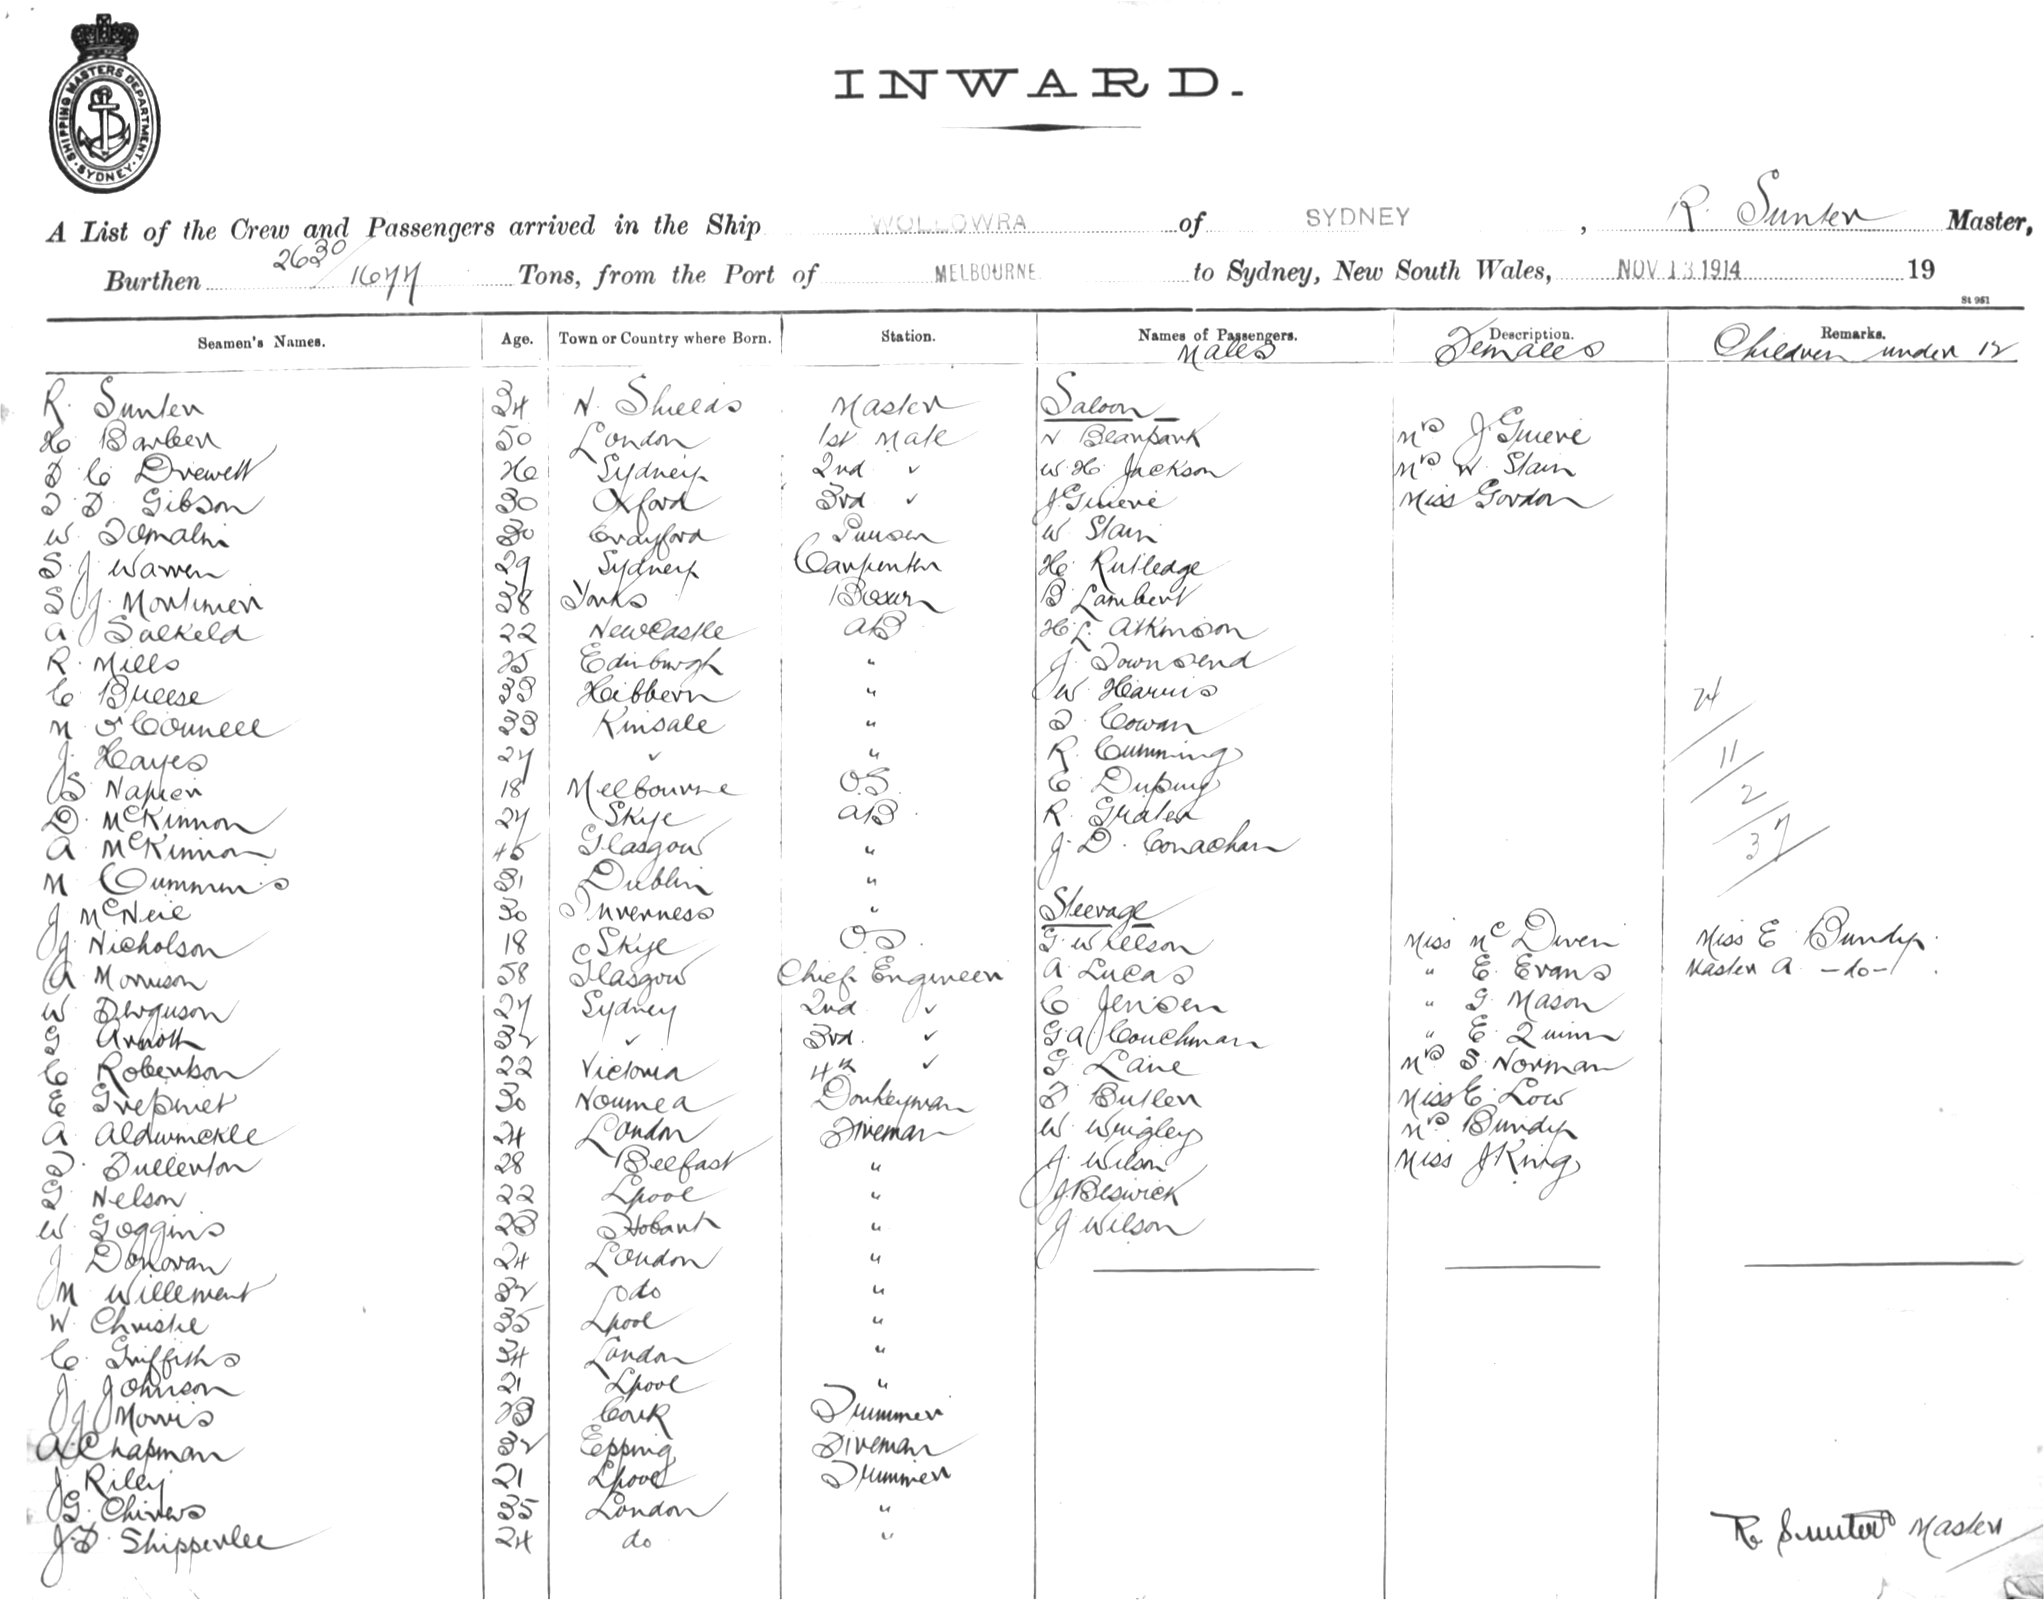 SHIPPING MASTERS DEPARTMENT · SYDNEY ·
INWARD.
A List of the Crew and Passengers arrived in the Ship WOLLOWRA of SYDNEY, R. Sunter Master,
Burthen 2630/1677 Tons, from the Port of MELBOURNE to Sydney, New South Wales, NOV 13 1914 19
St 951
Seamen's Names. Age. Town or Country where Born. Station. Names of Passengers. Description. Remarks.
Males Females Children under 12
R. Sunter 34 N. Shields Master Saloon
H. Barber 50 London 1st Mate N Bearpark Mrs J Grieve
D C Drewett 26 Sydney 2nd " W. H. Jackson Mrs W. Stain
T. D. Gibson 30 Oxford 3rd " J Grieve Miss Gordon
W. Tomalin 30 Crayford Purser W Stain
S. J Warren 29 Sydney Carpenter H. Rutledge
S. J. Mortimer 38 Yorks Bosun B Lambert
A Salkeld 22 Newcastle AB H. L. Atkinson
R. Mills 25 Edinburgh " J. Townsend
C Breese 33 Hebburn " W Harris
M O'Connell 33 Kinsale " T Cowan 24
J. Hayes 27 " " R Cumming 11
S Napier 18 Melbourne O.S. C Dupuy 2
D. McKinnon 27 Skye AB R. Grater 37
A McKinnon 45 Glasgow " J. D. Conachan
M Cummins 31 Dublin "
J McNeil 30 Inverness " Steerage
J. Nicholson 18 Skye O.S. G Willson Miss McDiven Miss E Bundy.
A Morrison 58 Glasgow Chief Engineer A Lucas " E. Evans Master A -do-
W Ferguson 27 Sydney 2nd " C Jensen " G Mason
G Arnott 32 " 3rd " G. A. Couchman " E Quinn
C Robertson 22 Victoria 4th " G Lane Mrs S. Norman
E 30 Noumea Donkeyman F Butler Miss E. Low
A Aldwinckle 24 London Fireman W Wrigley Mrs Bundy
T. Fullerton 28 Belfast " J. Wilson Miss J King
G Nelson 22 Lpool " J. Beswick
W Goggins 23 Hobart " J Wilson
J Donovan 24 London "
M Willement 32 do "
W. Christie 35 Lpool "
C. Griffiths 34 London "
J Johnson 21 Lpool "
J Morris 23 Cork Trimmer
A. Chapman 32 Epping Fireman
J Riley 21 Lpool Trimmer
G. Chivers 35 London "
J. F. Shipperlee 24 do "
R. Sunter Master